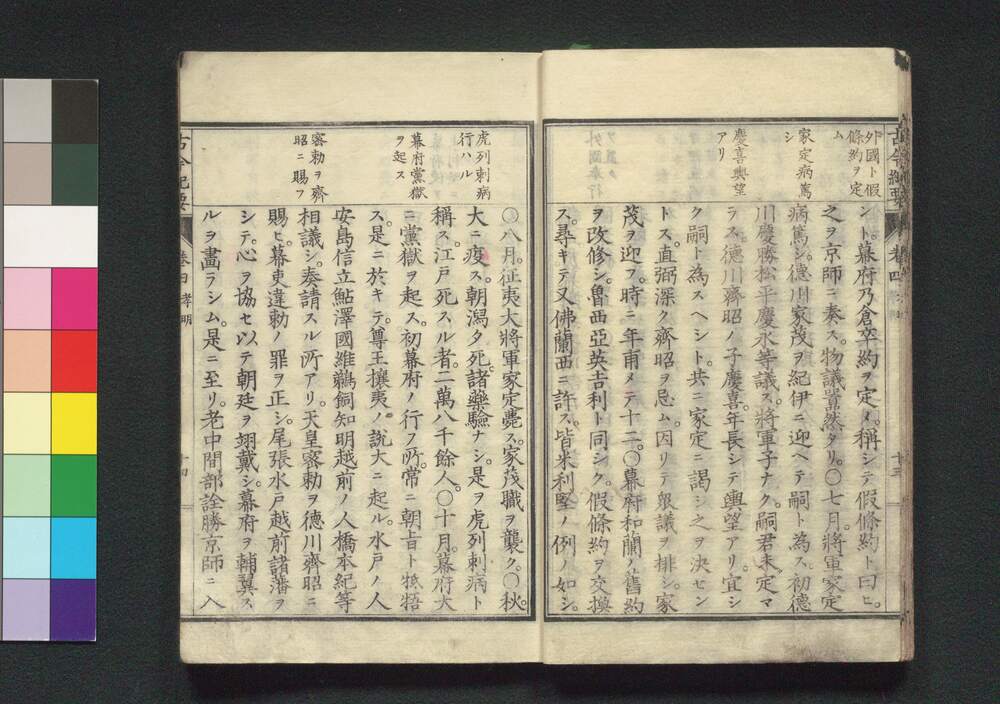 外國ト假
條約ヲ定
ム
家定病篤
シ
慶喜輿望
アリ
ント。幕府乃倉卒約ヲ定メ。稱シテ假條約ト曰ヒ。
之ヲ京師ニ奏ス。物議囂然タリ。〇七月。將軍家定
病篤シ。德川家茂ヲ紀伊ニ迎ヘテ嗣ト為ス。初德
川慶勝松平慶永等議ス。將軍子ナク。嗣君未定マ
ラス。德川齊昭ノ子慶喜。年長シテ輿望アリ。宜シ
ク嗣ト為スヘシト。共ニ家定ニ謁シ之ヲ決セン
トス。直弼深ク齊昭ヲ忌ム。因リテ衆議ヲ排シ。家
茂ヲ迎フ。時ニ年甫メテ十二。〇幕府和蘭ノ舊約
ヲ改修シ。魯西亞英吉利ト同シク。假條約ヲ交換
ス。尋キテ又佛蘭西ニ許ス。皆米利堅ノ例ノ如シ。
虎列剌病
行ハル
幕府黨獄
ヲ起ス
密勅ヲ齊
昭ニ賜フ
〇八月。征夷大將軍家定薨ス。家茂職ヲ襲ク。〇秋。
大ニ疫ス。朝潟夕死。諸藥驗ナシ。是ヲ虎列剌病ト
稱ス。江戸死スル者。二萬八千餘人。〇十月。幕府大
ニ黨獄ヲ起ス。初幕府ノ行フ所。常ニ朝旨ト牴牾
ス。是ニ於キテ。尊王攘夷ノ說大ニ起ル。水戸ノ人
安島信立鮎澤國維鵜飼知明越前ノ人橋本紀等
相議シ。奏請スル所アリ。天皇密勅ヲ德川齊昭ニ
賜ヒ。幕吏違勅ノ罪ヲ正シ。尾張水戸越前諸藩ヲ
シテ。心ヲ協セ以テ朝廷ヲ翊戴シ。幕府ヲ輔翼ス
ルヲ畫ラシム。是ニ至リ。老中間部詮勝京師ニ入
古今紀要
卷四 孝明
十四